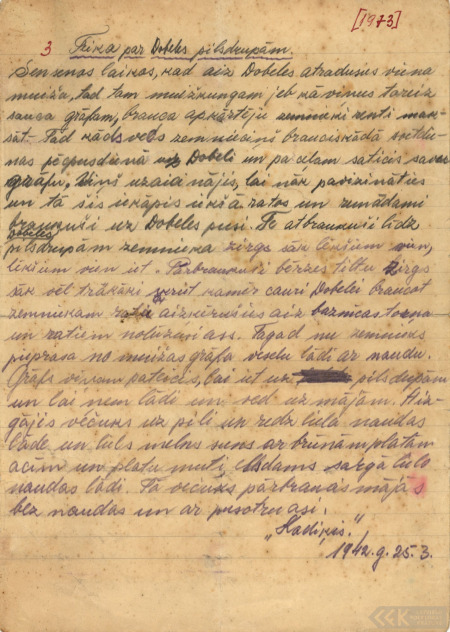 [1973]
3 Teika par Dobeles pilsdrupām.
Sensenos laikos, kad aiz Dobeles atradusies viena
muiža, tad tam muižkungam jeb kā viņus toreiz
sauca grāfam, brauca apkārtēju zemnieki renti mak-
sāt. Tad kāds vecs zemnieciņš braucis kādā svētdie-
nas pēcpusdienā uz Dobeli un pa ceļam saticis savu
grāfu. Viņš uzaicinājis, lai nāk pavizināties
un tā šis iekāpis iekšā ratos un runādami
braukuši uz Dobeles pusi. Te atbraukuši līdz
Dobeles
pilsdrupām zemnieka zirgs sāk likium vien,
likium vien iet. Pārbraukuši bērzes tiltu zirgs
sāk vēl trakāki skriet kamēr cauri Dobelei braucot
zemniekam rati aizķērušies aiz baznīcas torņa
un ratiem nolūzusi ass. Tagad nu zemnieks
pieprasa no muižas grāfa veselu lādi ar naudu.
Grāfs viņam pateicis, lai iet uz pilsdrupām
un lai ņem lādi un ved uz mājām. Aiz-
gājis vēčuks uz pili un redz liela naudas
lāde un liels melns suns ar brūnām platām
acīm un platu muti, sēdams sargā lielo
naudas lādi. Tā večuks pārbraucis mājās
bez naudas un ar pusotru asi.
"Hadiķis."
1942.g. 25.3.